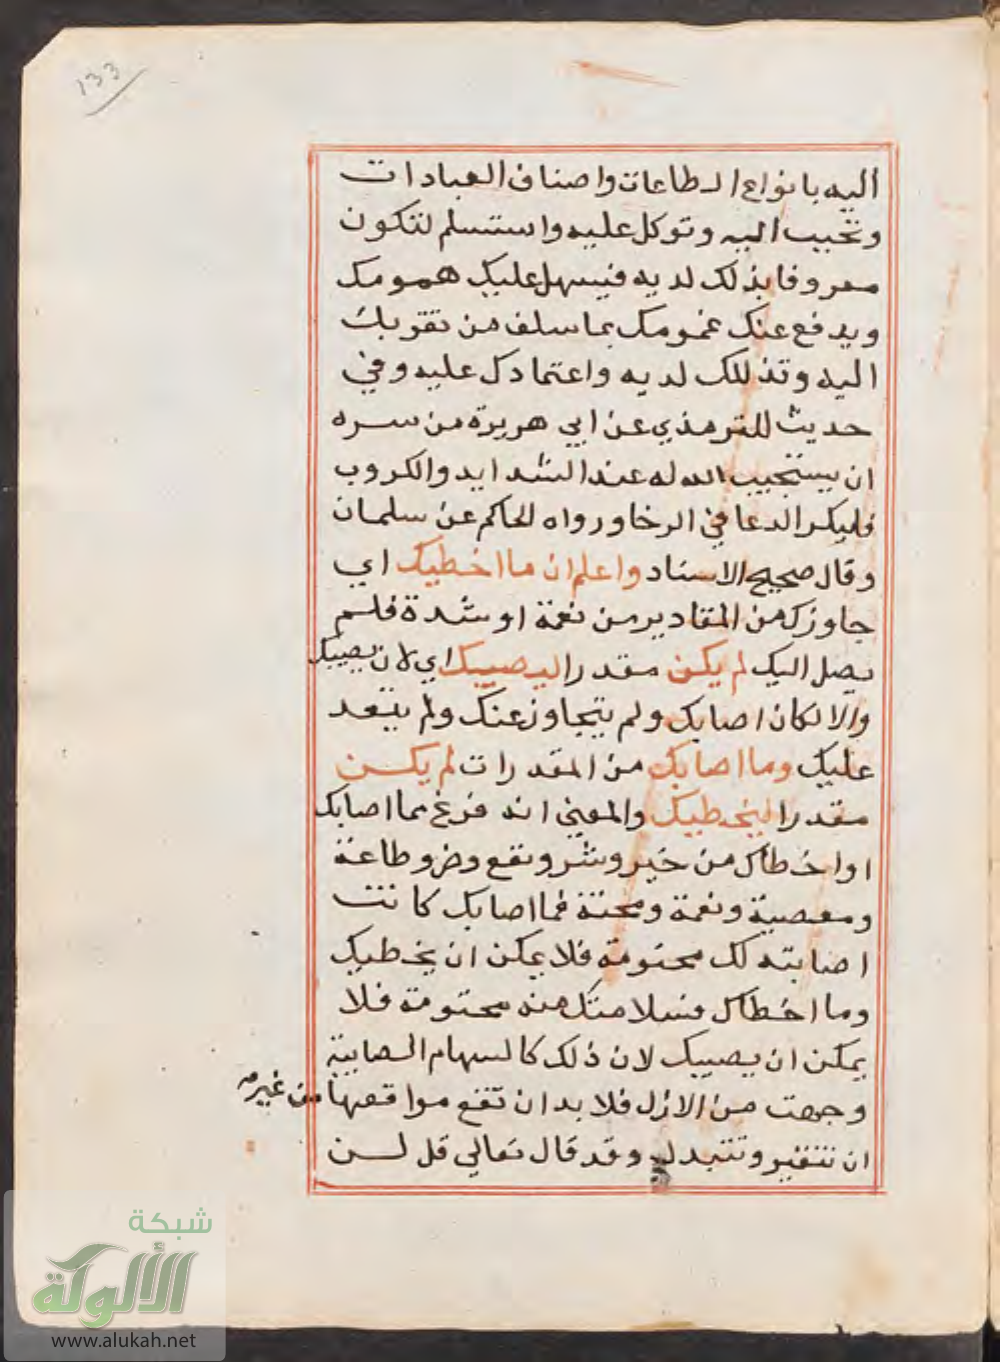 133
اليه بانواع الطاعات واصناف العبادات
وتحبب اليه وتوكل عليه واستسلم لتكون
معروفا بذلك لديه فيسهل عليك همومك
ويدفع عنك غمومك بما سلف من تقربك
اليه وتذللك لديه واعتمادك عليه وفي
حديث للترمذي عن ابي هريرة من سره
ان يستجيب الله له عند الشدايد والكروب
فليكر الدعا في الرخا ورواه الحاكم عن سلمان
وقال صحيح الاسناد واعلم ان ما اخطيك اي
جاوزك من المقادير من نعمة او شدة فلم
يصل اليك لم يكن مقدرا ليصيبك اي لان يصيبك
والا لكان اصابك ولم يتجاوز عنك ولم يتعد
عليك وما اصابك من المقدرات لم يكن
مقدرا ليخطيك والمعني انه فرغ مما اصابك
او اخطاك من خير وشر ونفع وضر وطاعة
ومعصية ونعمة ومحنة فما اصابك كانت
اصابته لك محتومة فلا يمكن ان يخطيك
وما اخطاك فسلامتك منه محتومة فلا
يمكن ان يصيبك لان ذلك كالسهام الصايبة
وجهت من الازل فلا بد ان تقع مواقعها من غير
ان تتغير وتتبدل وقد قال تعالي قل لن
شبكة
الألوكة
www.alukah.net